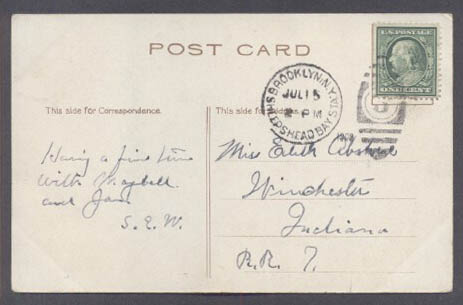 POST CARD
U.S. POSTAGE
ONE CENT
BROOKLYN, N.Y.
JUL 15
2 PM
SHEEPSHEAD BAY STA.
This side for Correspondence.
This side for
Having a fine time
with
and
S. E. W.
Miss Edith
Winchester
Indiana
R.R. 7.